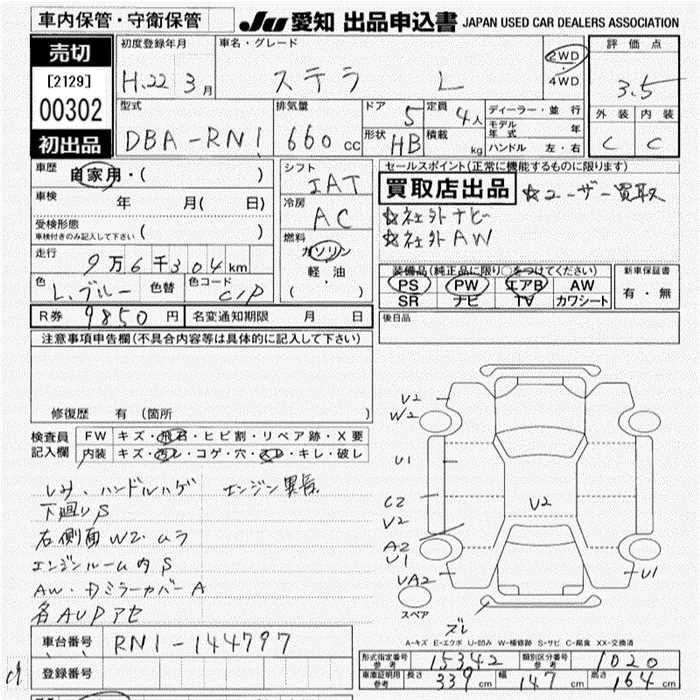 車内保管・守衛保管
JU 愛知 出品申込書 JAPAN USED CAR DEALERS ASSOCIATION
売切
[2129]
00302
初出品
初度登録年月
H.22 3月
車名・グレード
ステラ L
2WD
4WD
評価点
3.5
外装 内装
C C
型式
DBA-RN1
排気量
660cc
ドア 5
定員 4人
形状 HB
積載 kg
ディーラー・並行
モデル年式 年
ハンドル 左・右
車歴 自家用・( )
車検 年 月( 日)
受検形態
車検付きのみ記入して下さい ( )
走行 9万6千304km
色 L.ブルー 色替 色コード C/P
シフト
IAT
冷房
AC
燃料
ガソリン
軽油
( )
セールスポイント(正常に機能するものに限ります)
買取店出品 ☆ユーザー買取
☆社外ナビ
☆社外AW
装備品(純正品に限り○をつけてください)
PS PW エアB AW
SR ナビ TV カワシート
新車保証書
有・無
R券 9850円 名変通知期限 月 日
後日品
注意事項申告欄(不具合内容等は具体的に記入して下さい)
修復歴 有(箇所 )
検査員記入欄
FW キズ・飛石・ヒビ割・リペア跡・X要
内装 キズ・汚レ・コゲ・穴・スレ・キレ・破レ
シミ、ハンドルハゲ エンジン異音
下廻りS
右側面W2.ムラ
エンジンルーム内S
AW・Dミラーカバー A
各AUPアセ
V2
W2
U1
C2
V2
A2
U1
VA2
V2
U1
スペア
ズレ
A-キズ E-エクボ U-凹み W-補修跡 S-サビ C-腐食 XX-交換済
車台番号 RN1-144797
登録番号
形式指定番号 参考 15342 類別区分番号 参考 1020
車庫証明用 参考 長さ 339cm 幅 147cm 高さ 164cm